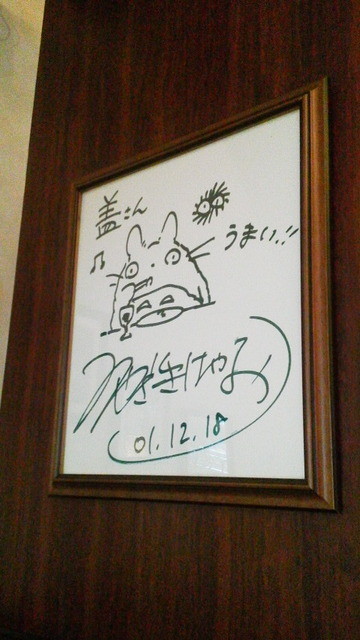 盖さん
うまい!!
みやざきはやお
01.12.18